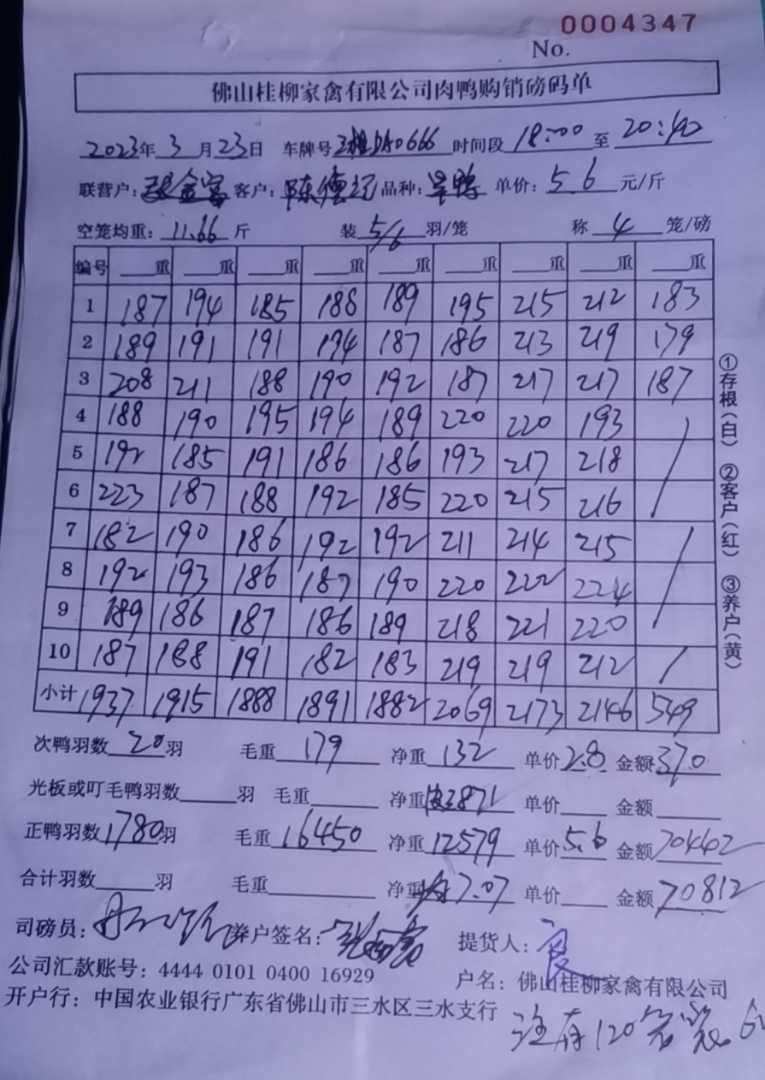 0004347
No.
佛山桂柳家禽有限公司肉鸭购销磅码单
2023年 3 月 23日 车牌号 0666 时间段 18:00 至 20:40
联营户: 金富 客户: 陈德记 品种: 鸭 单价: 5.6 元/斤
空笼均重: 11.66 斤 装 5/6 羽/笼 称 4 笼/磅
编号 重 重 重 重 重 重 重 重 重
1 187 194 185 188 189 195 215 212 183
2 189 191 191 194 187 186 213 219 179
3 208 211 188 190 192 187 217 217 187
4 188 190 195 194 189 220 220 193
5 192 185 191 186 186 193 217 218
6 223 187 188 192 185 220 215 216
7 182 190 186 192 192 211 214 215
8 192 193 186 187 190 220 222 224
9 189 186 187 186 189 218 221 220
10 187 188 191 182 183 219 219 212
小计 1937 1915 1888 1891 1882 2069 2173 2146 549
①存根(白) ②客户(红) ③养户(黄)
次鸭羽数 20 羽 毛重 179 净重 132 单价 2.8 金额 370
光板或叮毛鸭羽数 羽 毛重 净重 3871 单价 金额
正鸭羽数 1780 羽 毛重 16450 净重 12579 单价 5.6 金额 70442
合计羽数 羽 毛重 净重 7.07 单价 金额 70812
司磅员: 养户签名: 提货人:
公司汇款账号: 4444 0101 0400 16929 户名: 佛山桂柳家禽有限公司
开户行: 中国农业银行广东省佛山市三水区三水支行
注有120笼装6